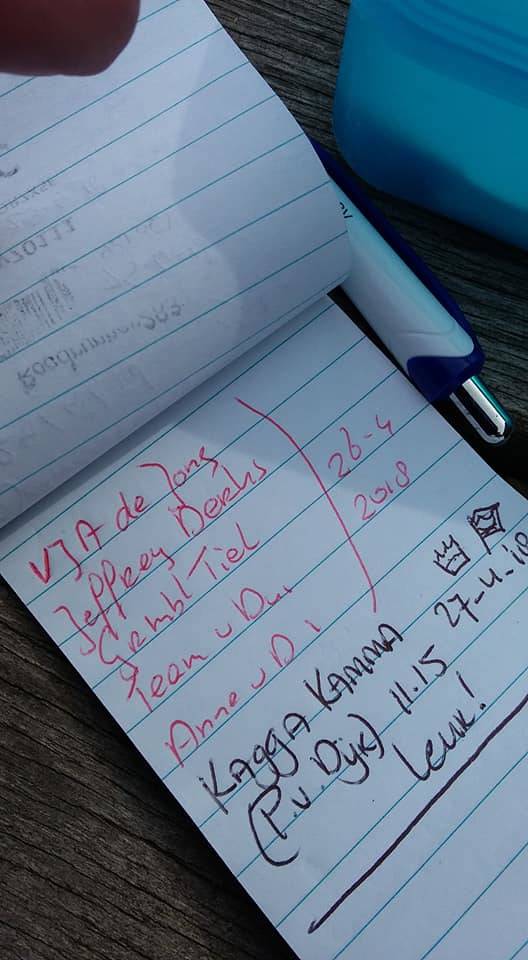 VJA de Jong
Jeffrey Derks
Grmbl Tiel
Team v Dui
Anne v D
26-4
2018
KAGGA KAMMA 27-4-'18
(P.v. Dijk) 11.15
Leuk!